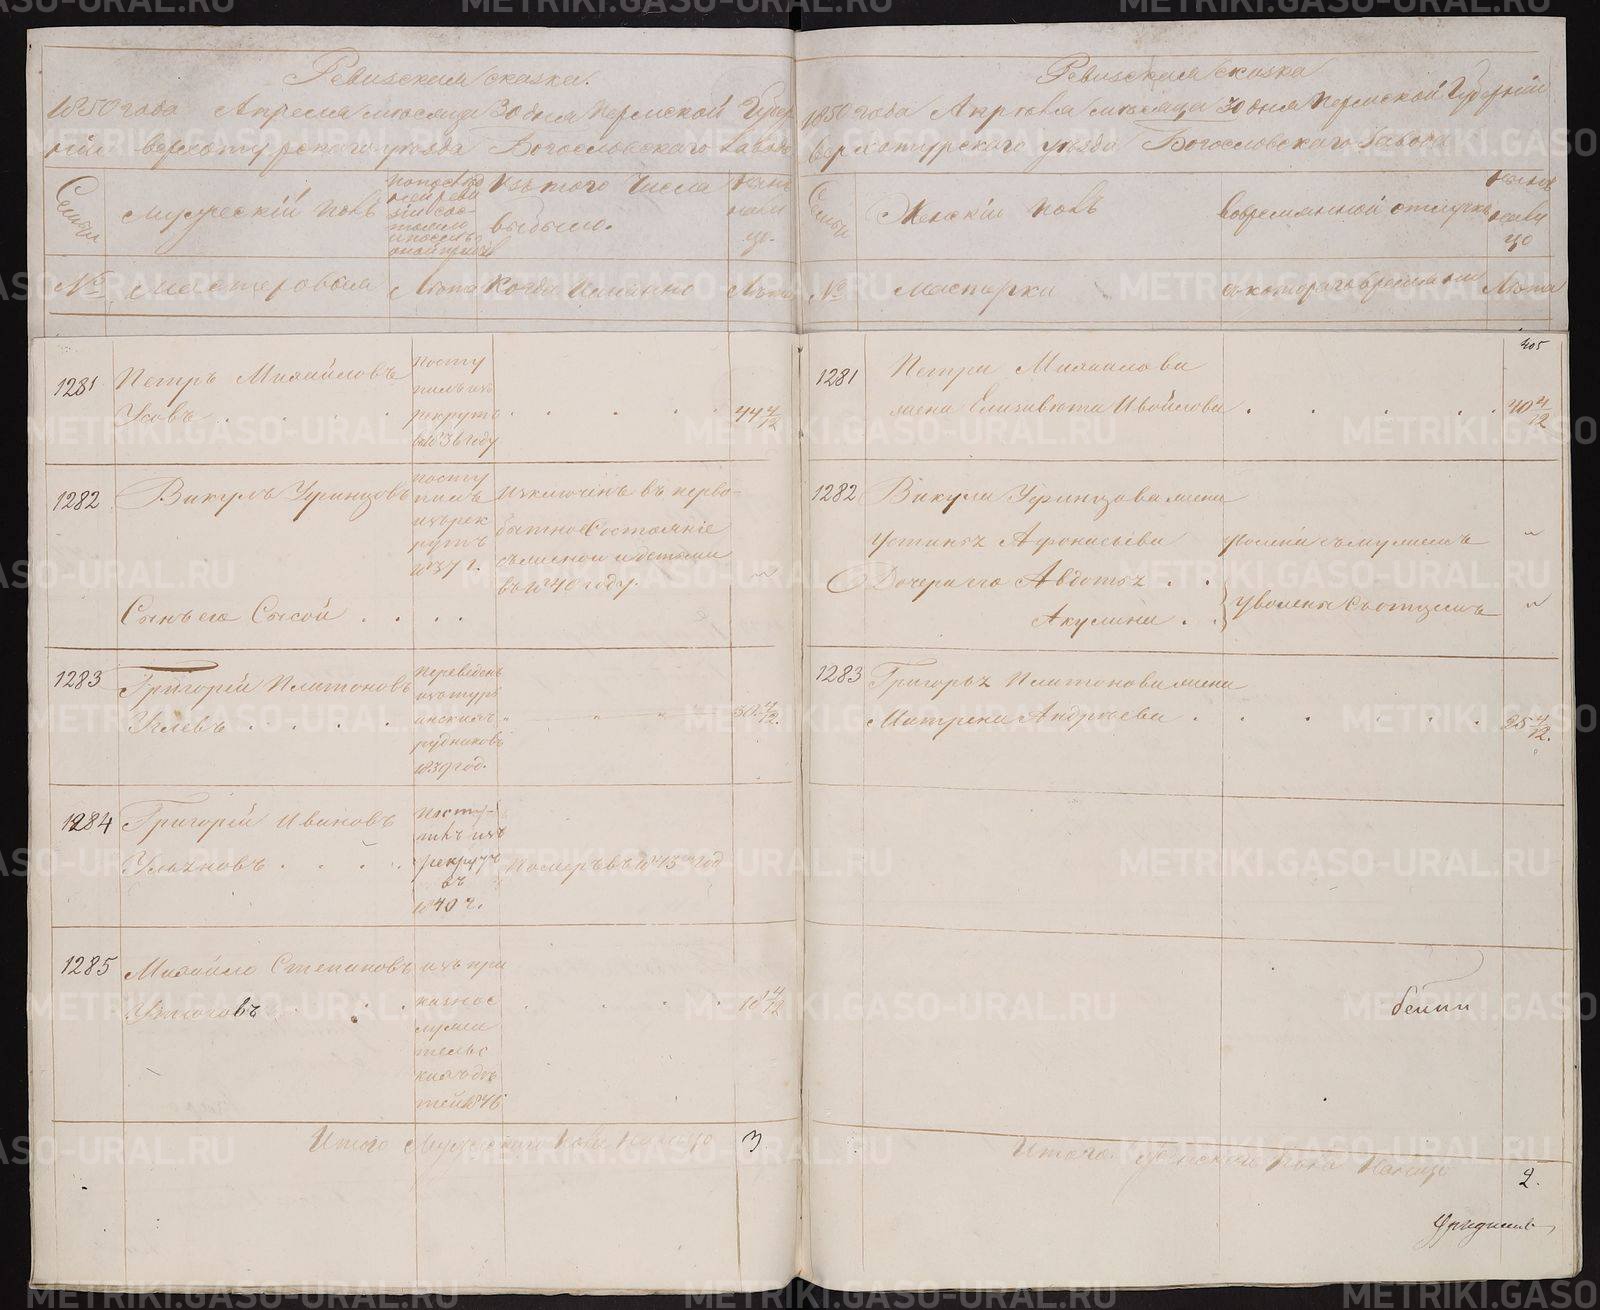 Ревизская сказка.
1850 года Апреля месяца 30 дня Пермской Губер
ніи верхотурскаго уезда Богословскаго завода
Семьи
Мужескій полъ
Изъ того числа
выбыло.
№
Мастеровыя
Лета
Когда именно
Лета
1281
Петръ Михайловъ
Усовъ
Посту
пилъ изъ
рекрутъ
въ 1836 году
44 4/12
1282
Викулъ Уфинцовъ
посту
пилъ
изърек
рутъ
1837 г.
Изключенъ въ перво-
бытное состояніе
съ женой и детьми
въ 1840 году.
Сынъ его Сысой
1283
Григорей Платоновъ
Углевъ
Переведенъ
изъ турь
инскихъ
рудниковъ
1839 год.
30 4/12
1284
Григорей Ивановъ
Ульяновъ
Посту-
пилъ изъ
рекрутъ
въ
1840 г.
Померъ въ 1843 год
1285
Михайло Степановъ
Устюговъ
изъ при
казнос
лужи
тельс
кихъ де
тей 1846
18 4/12
Итого Мужескаго пола налицо
3
Ревизская сказка
1850 года Апреля месяца 30 дня Пермской Губерніи
верхотурскаго уезда Богословскаго Завода
Семьи
Женскій полъ
во временной отлучке
№
Мастерки
съ котораго времени
Лета
405
1281
Петра Михайлова
жена Елизавета Ивойлова
40 4/12
1282
Викула Уфинцова жена
Устинья Афонасьева
уволена съ мужемъ
Дочери его Авдотья
Акулина
Уволены съ отцемъ
1283
Григорья Платонова жена
Матрена Андреева
25 4/12.
Итого женскаго пола налицо
2.